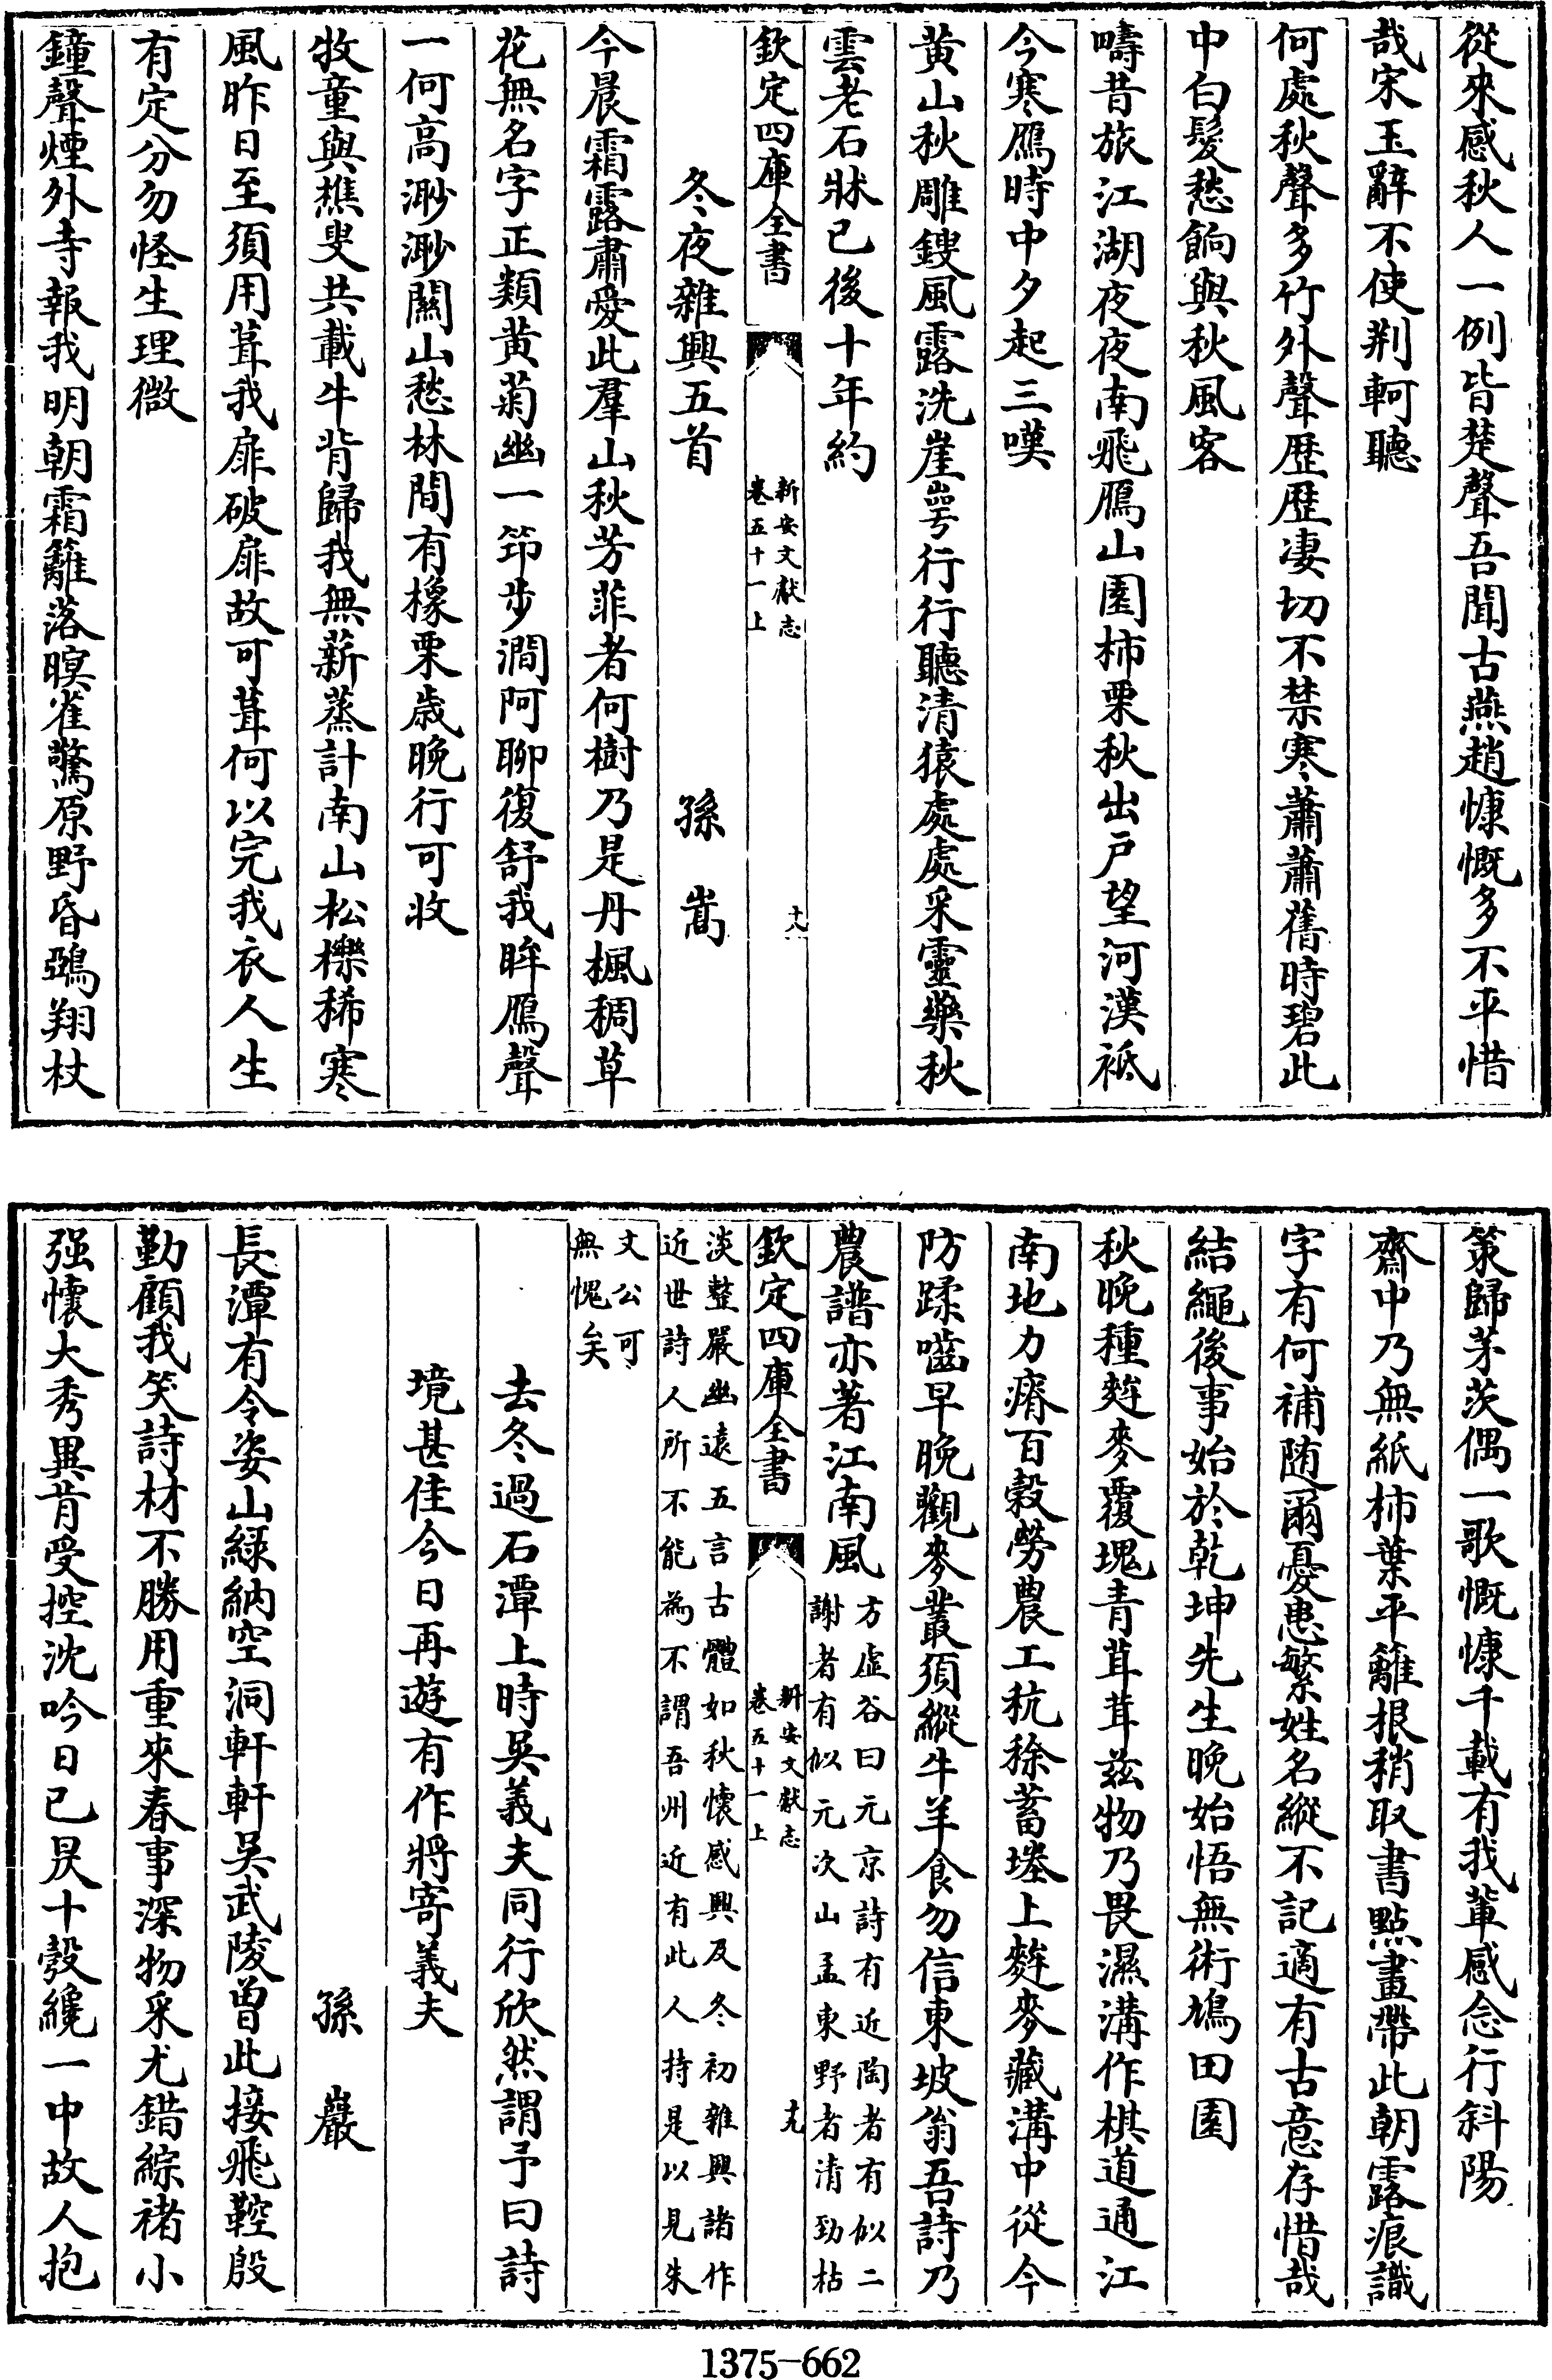 從來感秋人一例皆楚聲吾聞古燕趙慷慨多不平惜
哉宋玉辭不使荆軻聽
何處秋聲多竹外聲歷歷淒切不禁寒蕭蕭舊時碧此
中白髮愁餉與秋風客
疇昔旅江湖夜夜南飛鴈山園柿栗秋出戶望河漢祗
今寒鴈時中夕起三嘆
黄山秋雕鎪風露洗崖崿行行聽清猿處處采靈藥秋
雲老石牀已後十年約
欽定四庫全書
新安文獻志
卷五十一上
十八
冬夜雜興五首
孫嵩
今晨霜露肅愛此羣山秋芳菲者何樹乃是丹楓稠草
花無名字正類黄菊幽一筇步澗阿聊復舒我眸鴈聲
一何高渺渺關山愁林間有橡栗歲晚行可收
牧童與樵叟共載牛背歸我無薪蒸計南山松櫟稀寒
風昨日至須用葺我扉破扉故可葺何以完我衣人生
有定分勿怪生理微
鐘聲煙外寺報我明朝霜籬落暝雀驚原野昏鵶翔杖
策歸茅茨偶一歌慨慷千載有我輩感念行斜陽
齋中乃無紙柿葉平籬根稍取書點畫帶此朝露痕識
字有何補随爾憂患繁姓名縱不記適有古意存惜哉
結繩後事始於乾坤先生晚始悟無術鳩田園
秋晚種麰麥覆塊青茸茸兹物乃畏濕溝作棋道通江
南地力瘠百穀勞農工秔稌蓄塍上麰麥藏溝中從今
防蹂嚙早晚觀麥叢須縱牛羊食勿信東坡翁吾詩乃
農譜亦著江南風
方虚谷曰元京詩有近陶者有似二
謝者有似元次山孟東野者清勁枯
欽定四庫全書
新安文獻志
卷五十一上
十九
淡整嚴幽遠五言古體如秋懷感興及冬初雜興諸作
近世詩人所不能為不謂吾州近有此人持是以見朱
文公可
無愧矣
去冬過石潭上時吳義夫同行欣然謂予曰詩
境甚佳今日再遊有作將寄義夫
孫巖
長潭有令姿山緑納空洞軒軒吳武陵曾此接飛鞚殷
勤顧我笑詩材不勝用重來春事深物采尤錯綜褚小
强懷大秀異肯受控沈吟日已昃十彀纔一中故人抱
1375—662